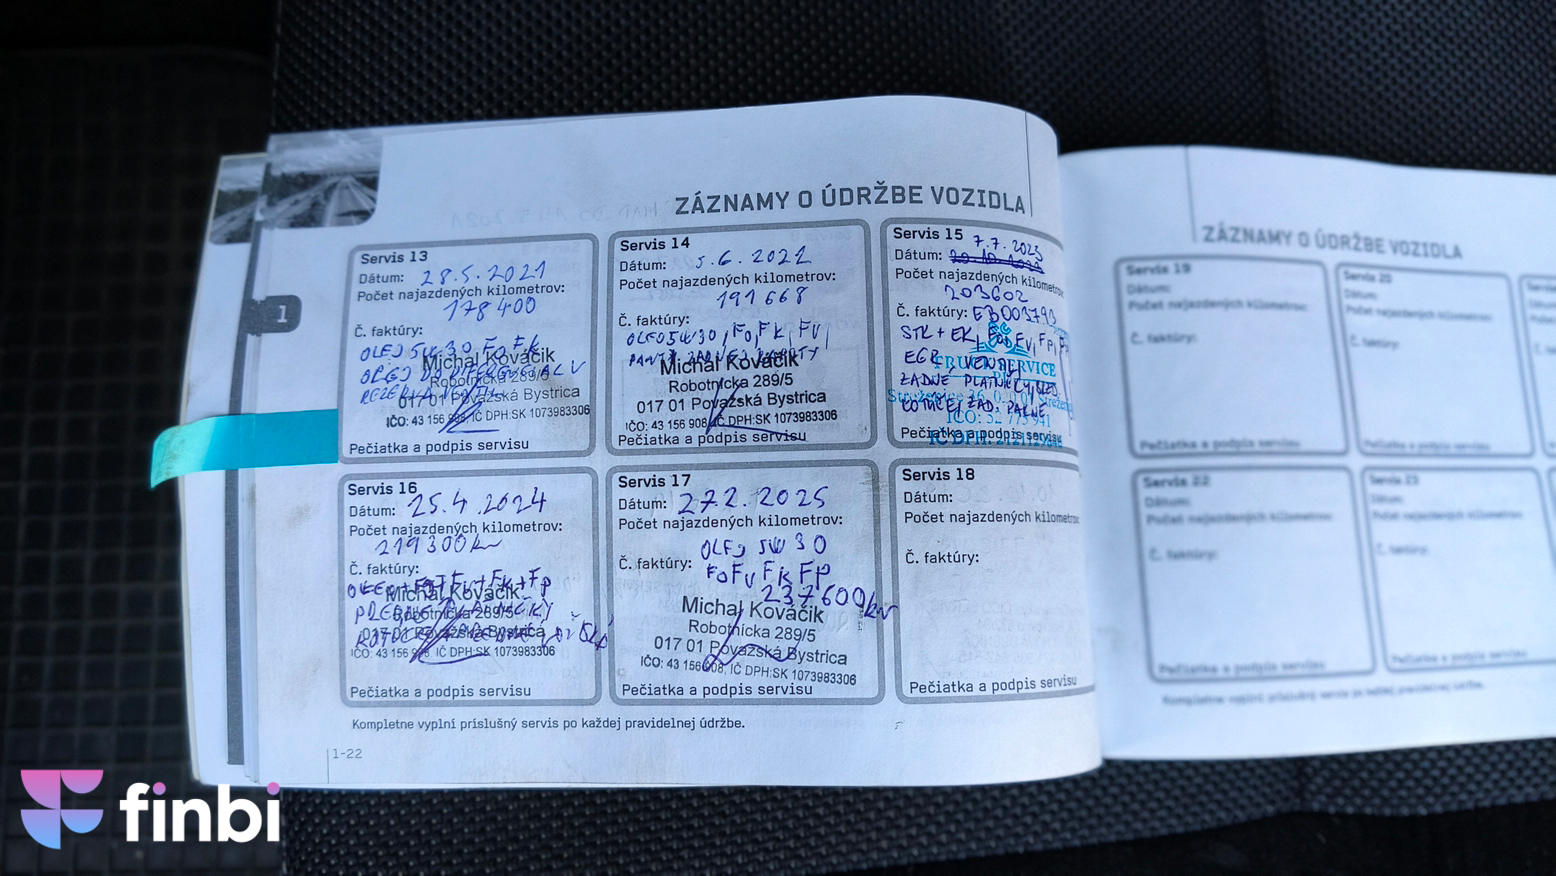 ZÁZNAMY O ÚDRŽBE VOZIDLA
1
Servis 13
Dátum: 28.5.2021
Počet najazdených kilometrov:
178 400
Č. faktúry:
OLEJ 5W30, Fo, Fk
OLEJ DO DIFERENCIALU
Michal Kováčik
Robotnícka 289/5
017 01 Považská Bystrica
IČO: 43 156 908, IČ DPH:SK 1073983306
Pečiatka a podpis servisu
Servis 14
Dátum: 5.6.2022
Počet najazdených kilometrov:
191 668
Č. faktúry:
OLEJ 5W30, Fo, Fk, Fv,
Michal Kováčik
Robotnícka 289/5
017 01 Považská Bystrica
IČO: 43 156 908, IČ DPH:SK 1073983306
Pečiatka a podpis servisu
Servis 15
7.7.2023
Dátum:
Počet najazdených kilometrov
203602
Č. faktúry: EB003793
STK + EK,
EGR VENTIL
ZADNE PLATNIČKY,
KOTUČE, ZAD.
Pečiatka a podpis servisu
Servis 16
Dátum: 25.4.2024
Počet najazdených kilometrov:
219300km
Č. faktúry:
OLEJ + Fo + Fv + Fk + Fp
Michal Kováčik
Robotnícka 289/5
017 01 Považská Bystrica
IČO: 43 156 908, IČ DPH:SK 1073983306
Pečiatka a podpis servisu
Servis 17
Dátum: 27.2.2025
Počet najazdených kilometrov:
OLEJ 5W30
Č. faktúry: Fo Fv Fk Fp
237600km
Michal Kováčik
Robotnícka 289/5
017 01 Považská Bystrica
IČO: 43 156 908, IČ DPH:SK 1073983306
Pečiatka a podpis servisu
Servis 18
Dátum:
Počet najazdených kilometrov
Č. faktúry:
Pečiatka a podpis servisu
Kompletne vyplní príslušný servis po každej pravidelnej údržbe.
1-22
ZÁZNAMY O ÚDRŽBE VOZIDLA
Servis 19
Dátum:
Počet najazdených kilometrov:
Č. faktúry:
Pečiatka a podpis servisu
Servis 20
Dátum:
Počet najazdených kilometrov:
Č. faktúry:
Pečiatka a podpis servisu
Servis 22
Dátum:
Počet najazdených kilometrov:
Č. faktúry:
Pečiatka a podpis servisu
Servis 23
Dátum:
Počet najazdených kilometrov:
Č. faktúry:
Pečiatka a podpis servisu
Kompletne vyplní príslušný servis po každej pravidelnej údržbe.
finbi